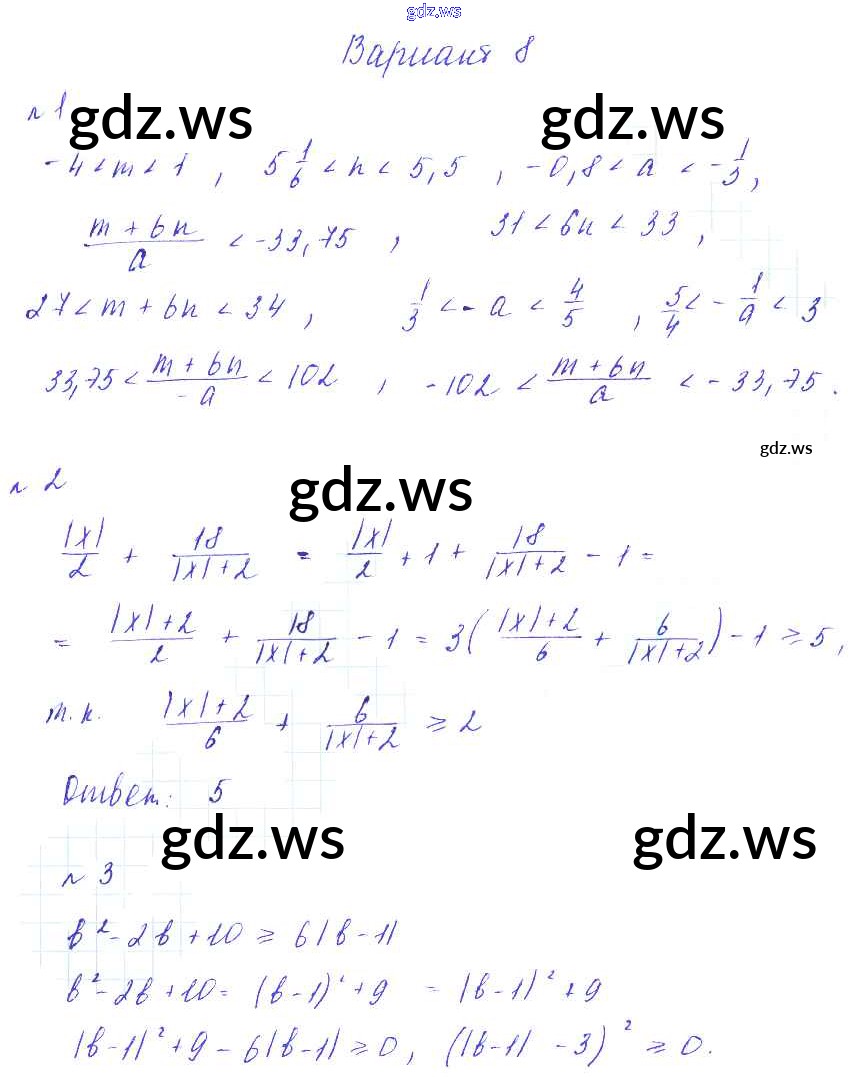 gdz.ws
Вариант 8
№ 1
gdz.ws gdz.ws
-4 < m < 1 , 5 1/6 < n < 5,5 , -0,8 < a < -1/3,
(m + 6n)/a < -33,75 , 31 < 6n < 33 ,
27 < m + 6n < 34 , 1/3 < -a < 4/5 , 5/4 < -1/a < 3
33,75 < (m + 6n)/(-a) < 102 , -102 < (m + 6n)/a < -33,75 .
gdz.ws
№ 2
gdz.ws
|x|/2 + 18/(|x|+2) = |x|/2 + 1 + 18/(|x|+2) - 1 =
= (|x|+2)/2 + 18/(|x|+2) - 1 = 3((|x|+2)/6 + 6/(|x|+2)) - 1 ≥ 5,
т.к. (|x|+2)/6 + 6/(|x|+2) ≥ 2
Ответ: 5
gdz.ws gdz.ws
№ 3
b² - 2b + 10 ≥ 6|b - 1|
b² - 2b + 10 = (b - 1)² + 9 = |b - 1|² + 9
|b - 1|² + 9 - 6|b - 1| ≥ 0, (|b - 1| - 3)² ≥ 0.